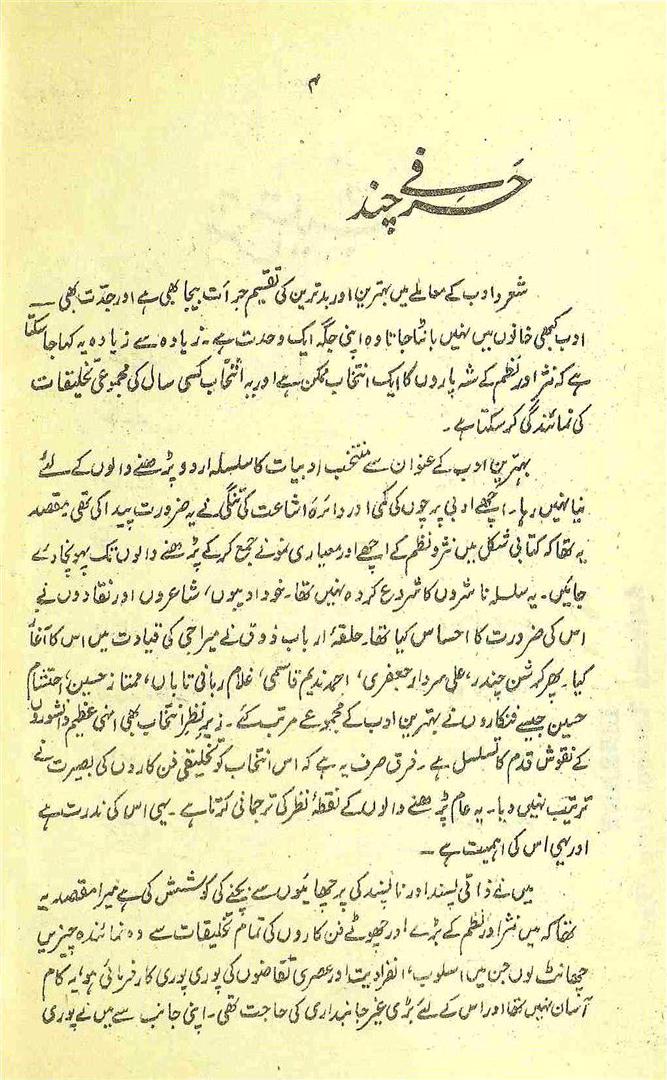 ۴
حرفے چند
شعر و ادب کے معاملے میں بہترین اور بدترین کی تقسیم جرأت بیجا بھی ہے اور جدّت بھی ــ
ادب کبھی خانوں میں نہیں بانٹا جاتا وہ اپنی جگہ ایک وحدت ہے۔ زیادہ سے زیادہ یہ کہا جا سکتا
ہے کہ نثر اور نظم کے شہ پاروں کا ایک انتخاب ممکن ہے اور یہ انتخاب کسی سال کی مجموعی تخلیقات
کی نمائندگی کر سکتا ہے۔
بہترین ادب کے عنوان سے منتخب ادبیات کا سلسلہ اردو پڑھنے والوں کے لئے
نیا نہیں رہا۔ اچھے ادبی پرچوں کی کمی اور دائرہ اشاعت کی تنگی نے یہ ضرورت پیدا کی تھی۔ مقصد
یہ تھا کہ کتابی شکل میں نثر و نظم کے اچھے اور معیاری نمونے جمع کر کے پڑھنے والوں تک پہونچا دئے
جائیں۔ یہ سلسلہ ناشروں کا شروع کردہ نہیں تھا۔ خود ادیبوں، شاعروں اور نقادوں نے
اس کی ضرورت کا احساس کیا تھا۔ حلقۂ ارباب ذوق نے میراجی کی قیادت میں اس کا آغاز
کیا۔ پھر کرشن چندر، علی سردار جعفری، احمد ندیم قاسمی، غلام ربانی تاباں، ممتاز حسین، احتشام
حسین جیسے فنکاروں نے بہترین ادب کے مجموعے مرتب کئے۔ زیر نظر انتخاب بھی انہی عظیم دانشوروں
کے نقوش قدم کا تسلسل ہے۔ فرق صرف یہ ہے کہ اس انتخاب کو تخلیقی فن کاروں کی بصیرت نے
ترتیب نہیں دیا۔ یہ عام پڑھنے والوں کے نقطۂ نظر کی ترجمانی کرتا ہے۔ یہی اس کی ندرت ہے
اور یہی اس کی اہمیت ہے ۔
میں نے ذاتی پسند اور ناپسند کی پرچھائیوں سے بچنے کی کوشش کی ہے میرا مقصد یہ
تھا کہ میں نثر اور نظم کے بڑے اور چھوٹے فن کاروں کی تمام تخلیقات سے وہ نمائندہ چیزیں
چھانٹ لوں جن میں اسلوب، انفرادیت اور عصری تقاضوں کی پوری پوری کارفرمائی ہو، یہ کام
آسان نہیں تھا اور اس کے لئے بڑی غیر جانبداری کی حاجت تھی۔ اپنی جانب سے میں نے پوری